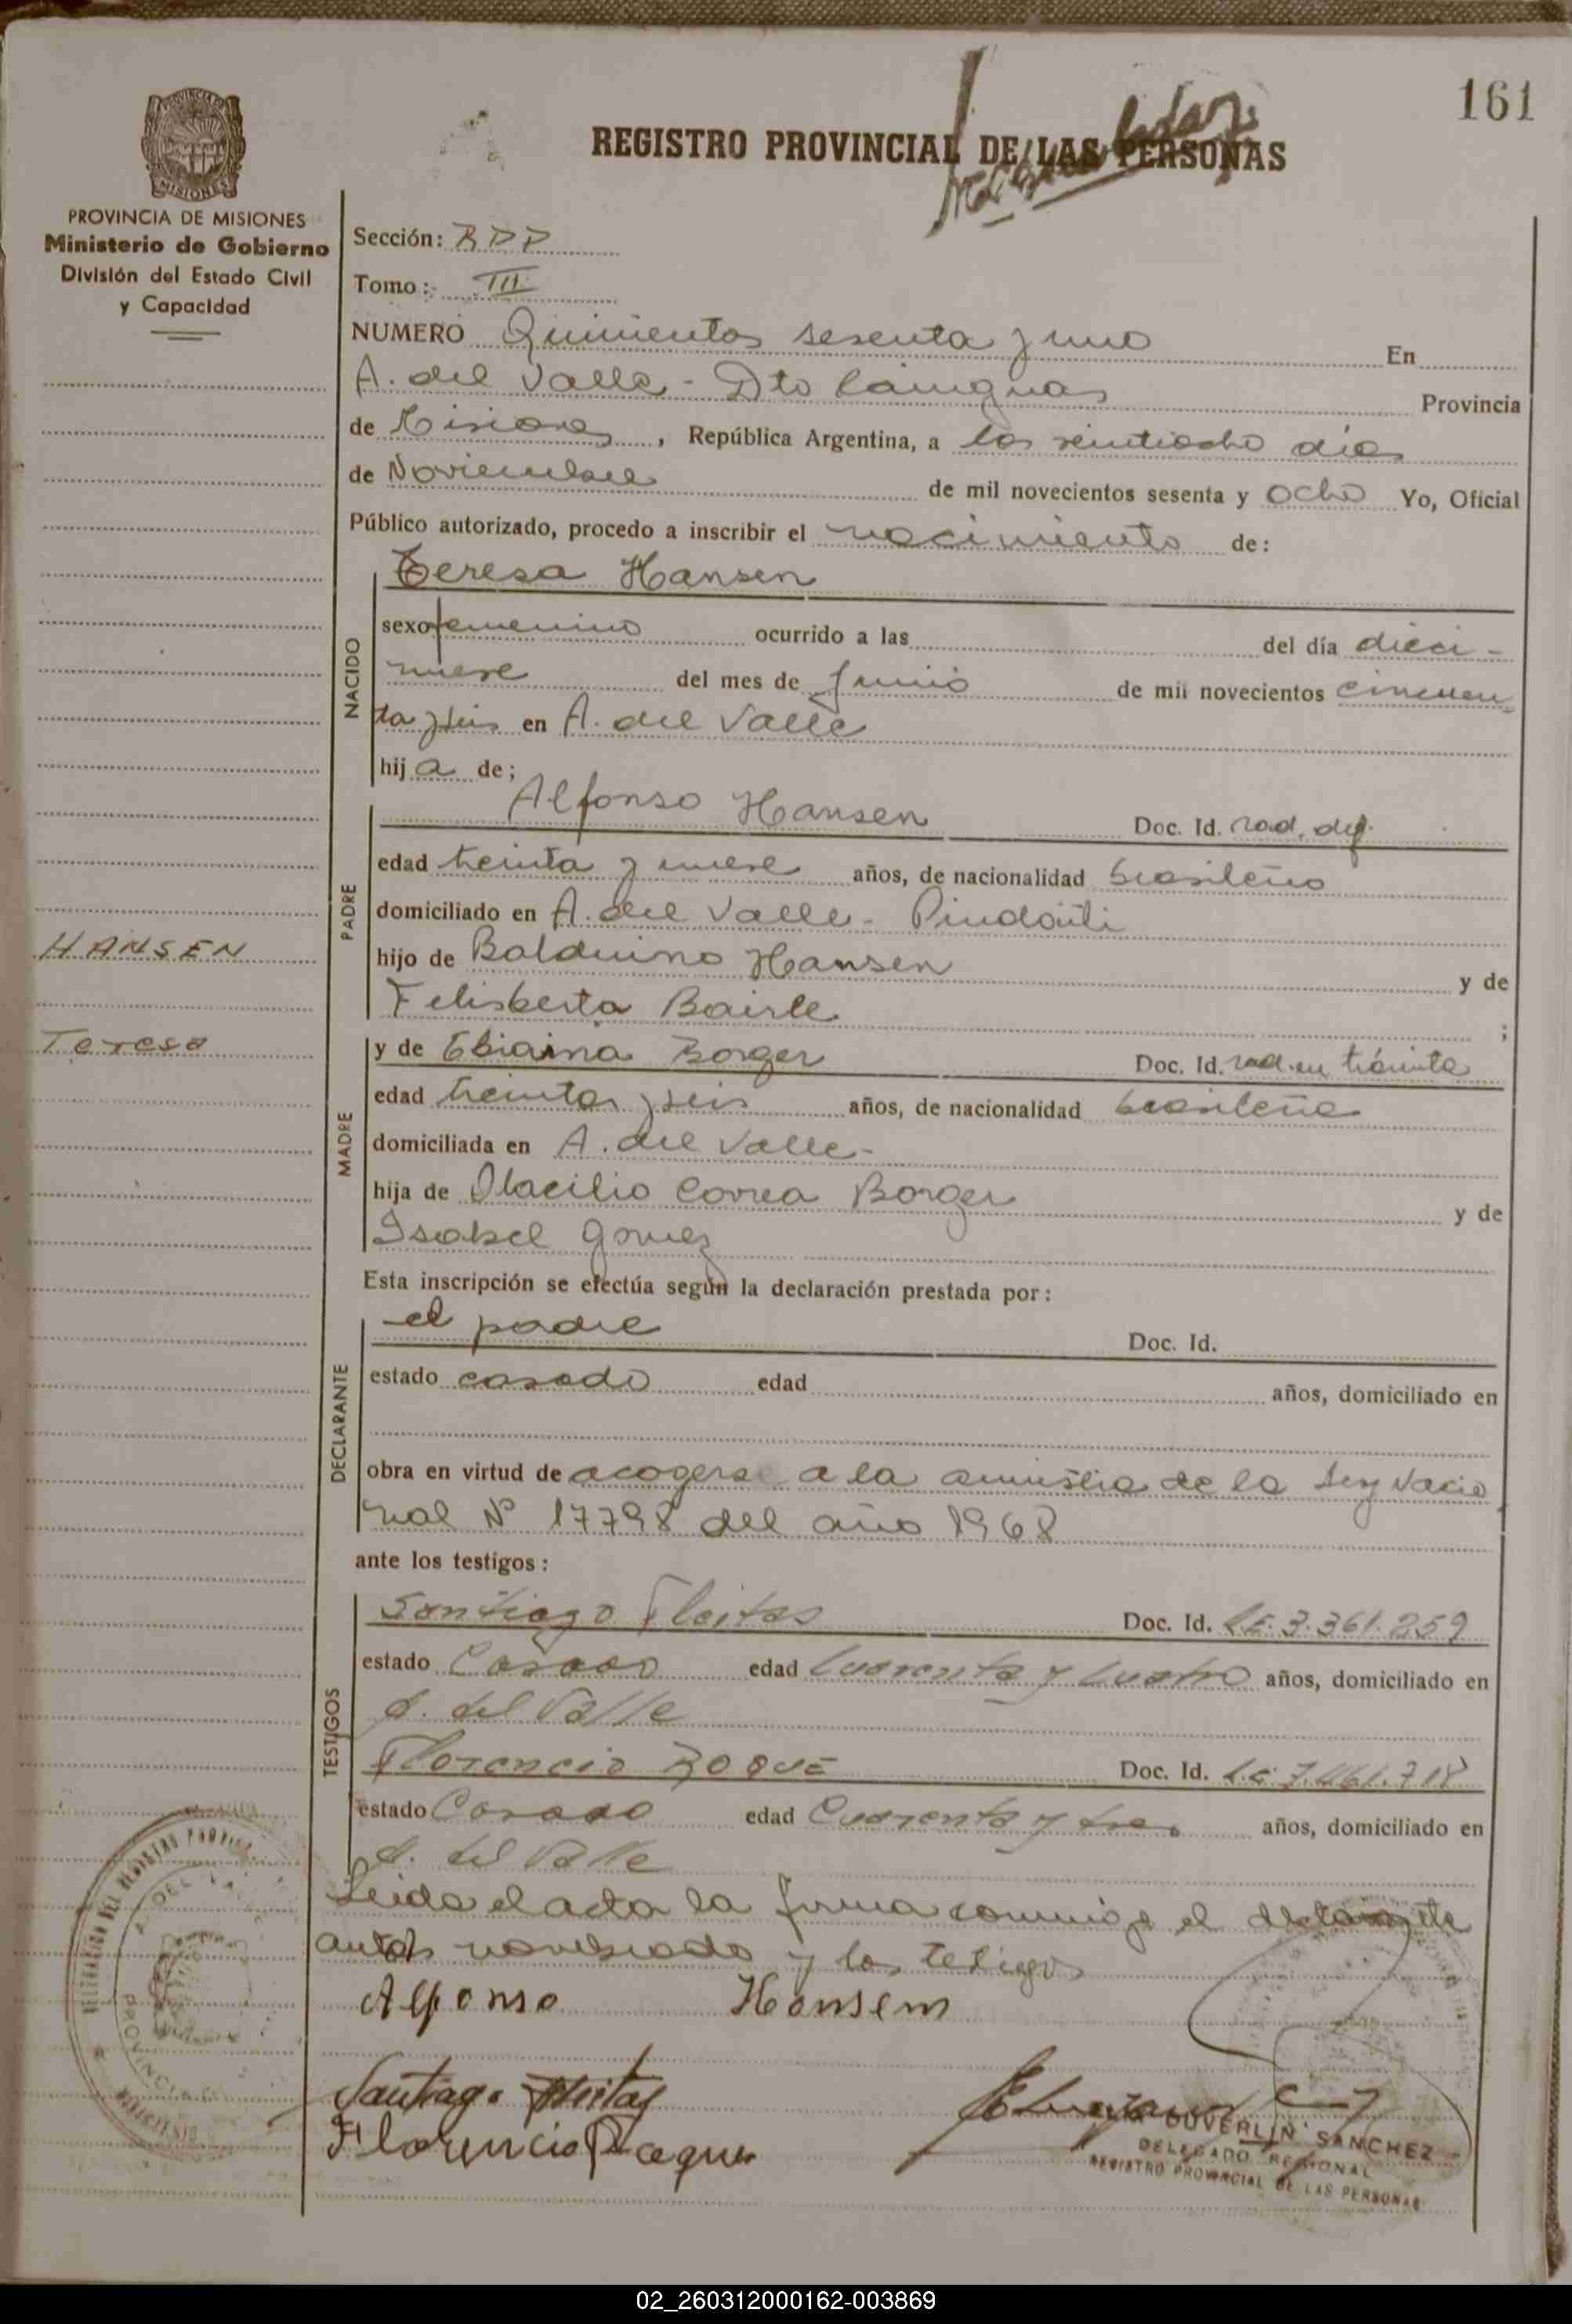 161
REGISTRO PROVINCIAL DE LAS PERSONAS
PROVINCIA DE MISIONES
Ministerio de Gobierno
División del Estado Civil
y Capacidad
Sección: RPP
Tomo: III
NUMERO Quinientos sesenta y uno En
A. del Valle - Dto Cainguas Provincia
de Misiones, República Argentina, a los veintiocho días
de Noviembre de mil novecientos sesenta y ocho Yo, Oficial
Público autorizado, procedo a inscribir el nacimiento de:
NACIDO
Teresa Hansen
sexo femenino ocurrido a las del día dieci-
nueve del mes de Junio de mil novecientos cincuen
ta y seis en A. del Valle
hija de;
PADRE
Alfonso Hansen Doc. Id. rad. def.
edad treinta y nueve años, de nacionalidad brasileño
domiciliado en A. del Valle - Pindaiti
hijo de Balduino Hansen y de
Felisberta Bairle ;
HANSEN
Teresa
MADRE
y de Ebiaina Borger Doc. Id. rad. en trámite
edad treinta y seis años, de nacionalidad brasileña
domiciliada en A. del Valle-
hija de Olacilio Correa Borger y de
Isabel Gomez
Esta inscripción se efectúa según la declaración prestada por:
DECLARANTE
el padre Doc. Id.
estado casado edad años, domiciliado en
obra en virtud de acogerse a la amnistia de la Ley Nacio
nal Nº 17798 del año 1968
ante los testigos:
TESTIGOS
Santiago Fleitas Doc. Id. L.E. 3.361.259
estado Casado edad Cuarenta y Cuatro años, domiciliado en
A. del Valle
Florencio Roque Doc. Id. L.E. 7.461.718
estado Casado edad Cuarenta y tres años, domiciliado en
A. del Valle
Leida el acta la firma conmigo el declarante
antes nombrado y los testigos
Alfonso Hansem
Santiago Fleitas
Florencio Roque
DUVERLIN SANCHEZ
DELEGADO REGIONAL
REGISTRO PROVINCIAL DE LAS PERSONAS
02_260312000162-003869